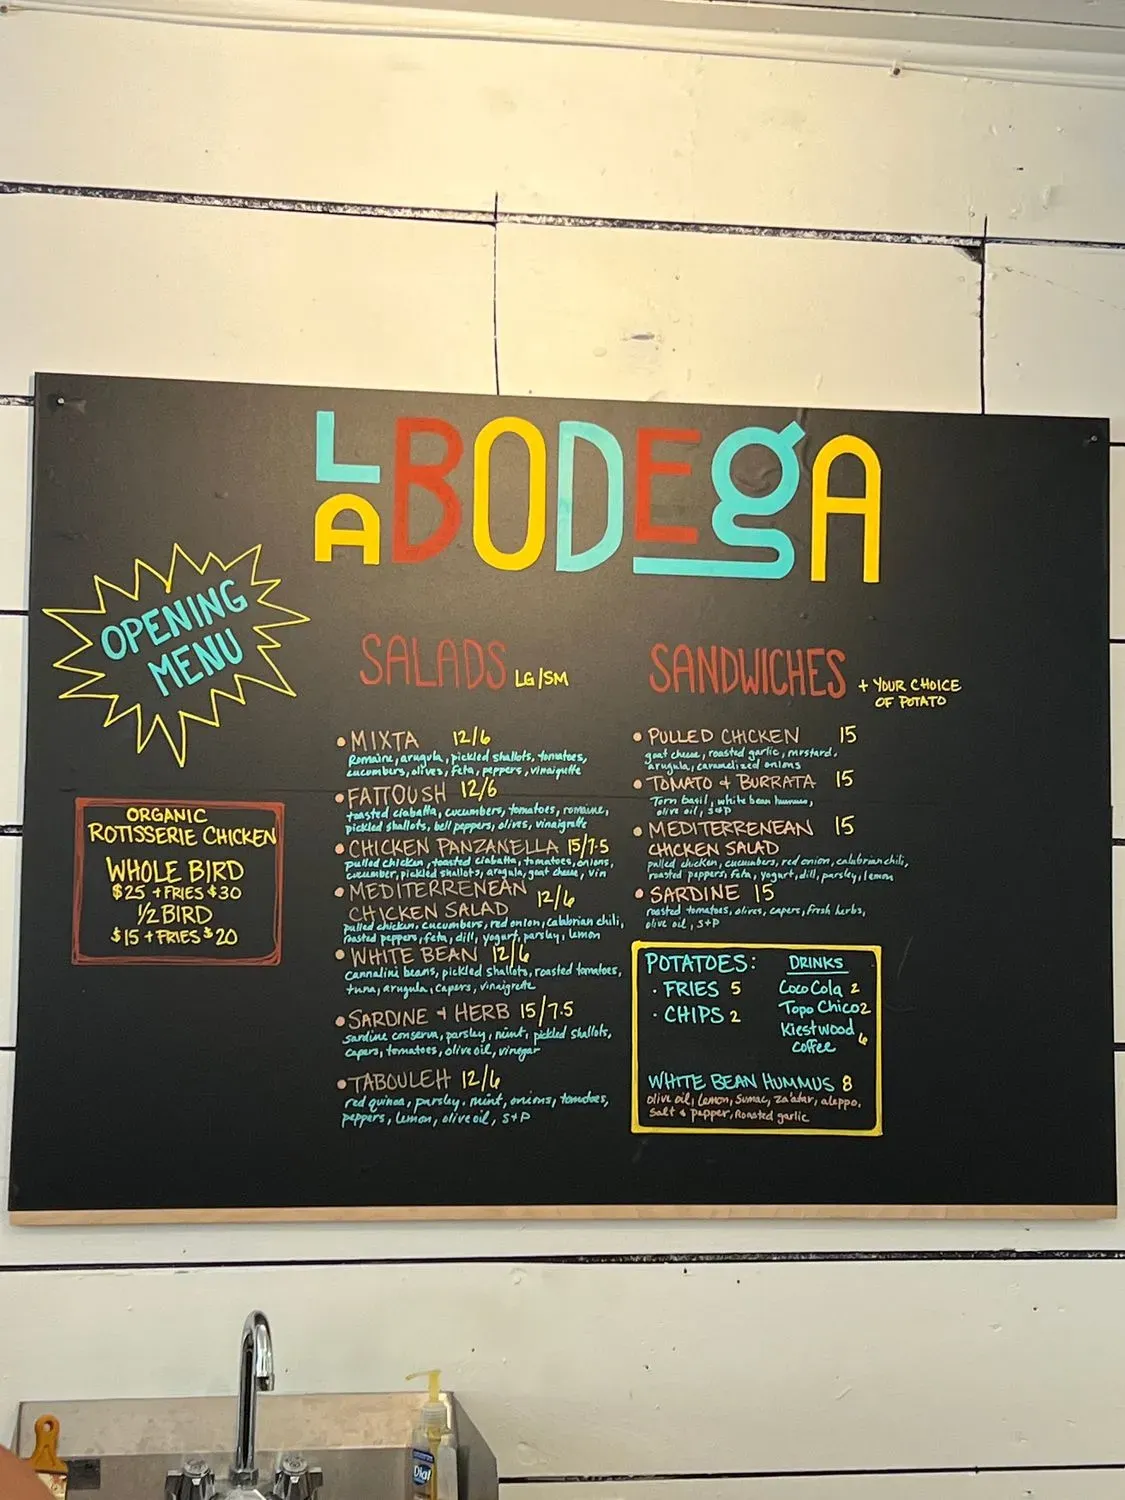 LA BODEGA
OPENING
MENU
ORGANIC
ROTISSERIE CHICKEN
WHOLE BIRD
$25 + FRIES $30
1/2 BIRD
$15 + FRIES $20
SALADS LG/SM
• MIXTA 12/6
Romaine, arugula, pickled shallots, tomatoes,
cucumbers, olives, feta, peppers, vinaigrette
• FATTOUSH 12/6
toasted ciabatta, cucumbers, tomatoes, romaine,
pickled shallots, bell peppers, olives, vinaigrette
• CHICKEN PANZANELLA 15/7.5
pulled chicken, toasted ciabatta, tomatoes, onions,
cucumber, pickled shallots, arugula, goat cheese, vin
• MEDITERRENEAN 12/6
CHICKEN SALAD
pulled chicken, cucumbers, red onion, calabrian chili,
roasted peppers, feta, dill, yogurt, parsley, lemon
• WHITE BEAN 12/6
cannalini beans, pickled shallots, roasted tomatoes,
tuna, arugula, capers, vinaigrette
• SARDINE & HERB 15/7.5
sardine conserva, parsley, mint, pickled shallots,
capers, tomatoes, olive oil, vinegar
• TABOULEH 12/6
red quinoa, parsley, mint, onions, tomatoes,
peppers, lemon, olive oil, S+P
SANDWICHES + YOUR CHOICE
OF POTATO
• PULLED CHICKEN 15
goat cheese, roasted garlic, mustard,
arugula, caramelized onions
• TOMATO & BURRATA 15
Torn basil, white bean hummus,
olive oil, S+P
• MEDITERRENEAN 15
CHICKEN SALAD
pulled chicken, cucumbers, red onion, calabrian chili,
roasted peppers, feta, yogurt, dill, parsley, lemon
• SARDINE 15
roasted tomatoes, olives, capers, fresh herbs,
olive oil, S+P
POTATOES:
· FRIES 5
· CHIPS 2
DRINKS
Coco Cola 2
Topo Chico 2
Kiestwood
Coffee 6
WHITE BEAN HUMMUS 8
olive oil, Lemon, Sumac, za'atar, aleppo,
Salt & pepper, Roasted garlic
Dial